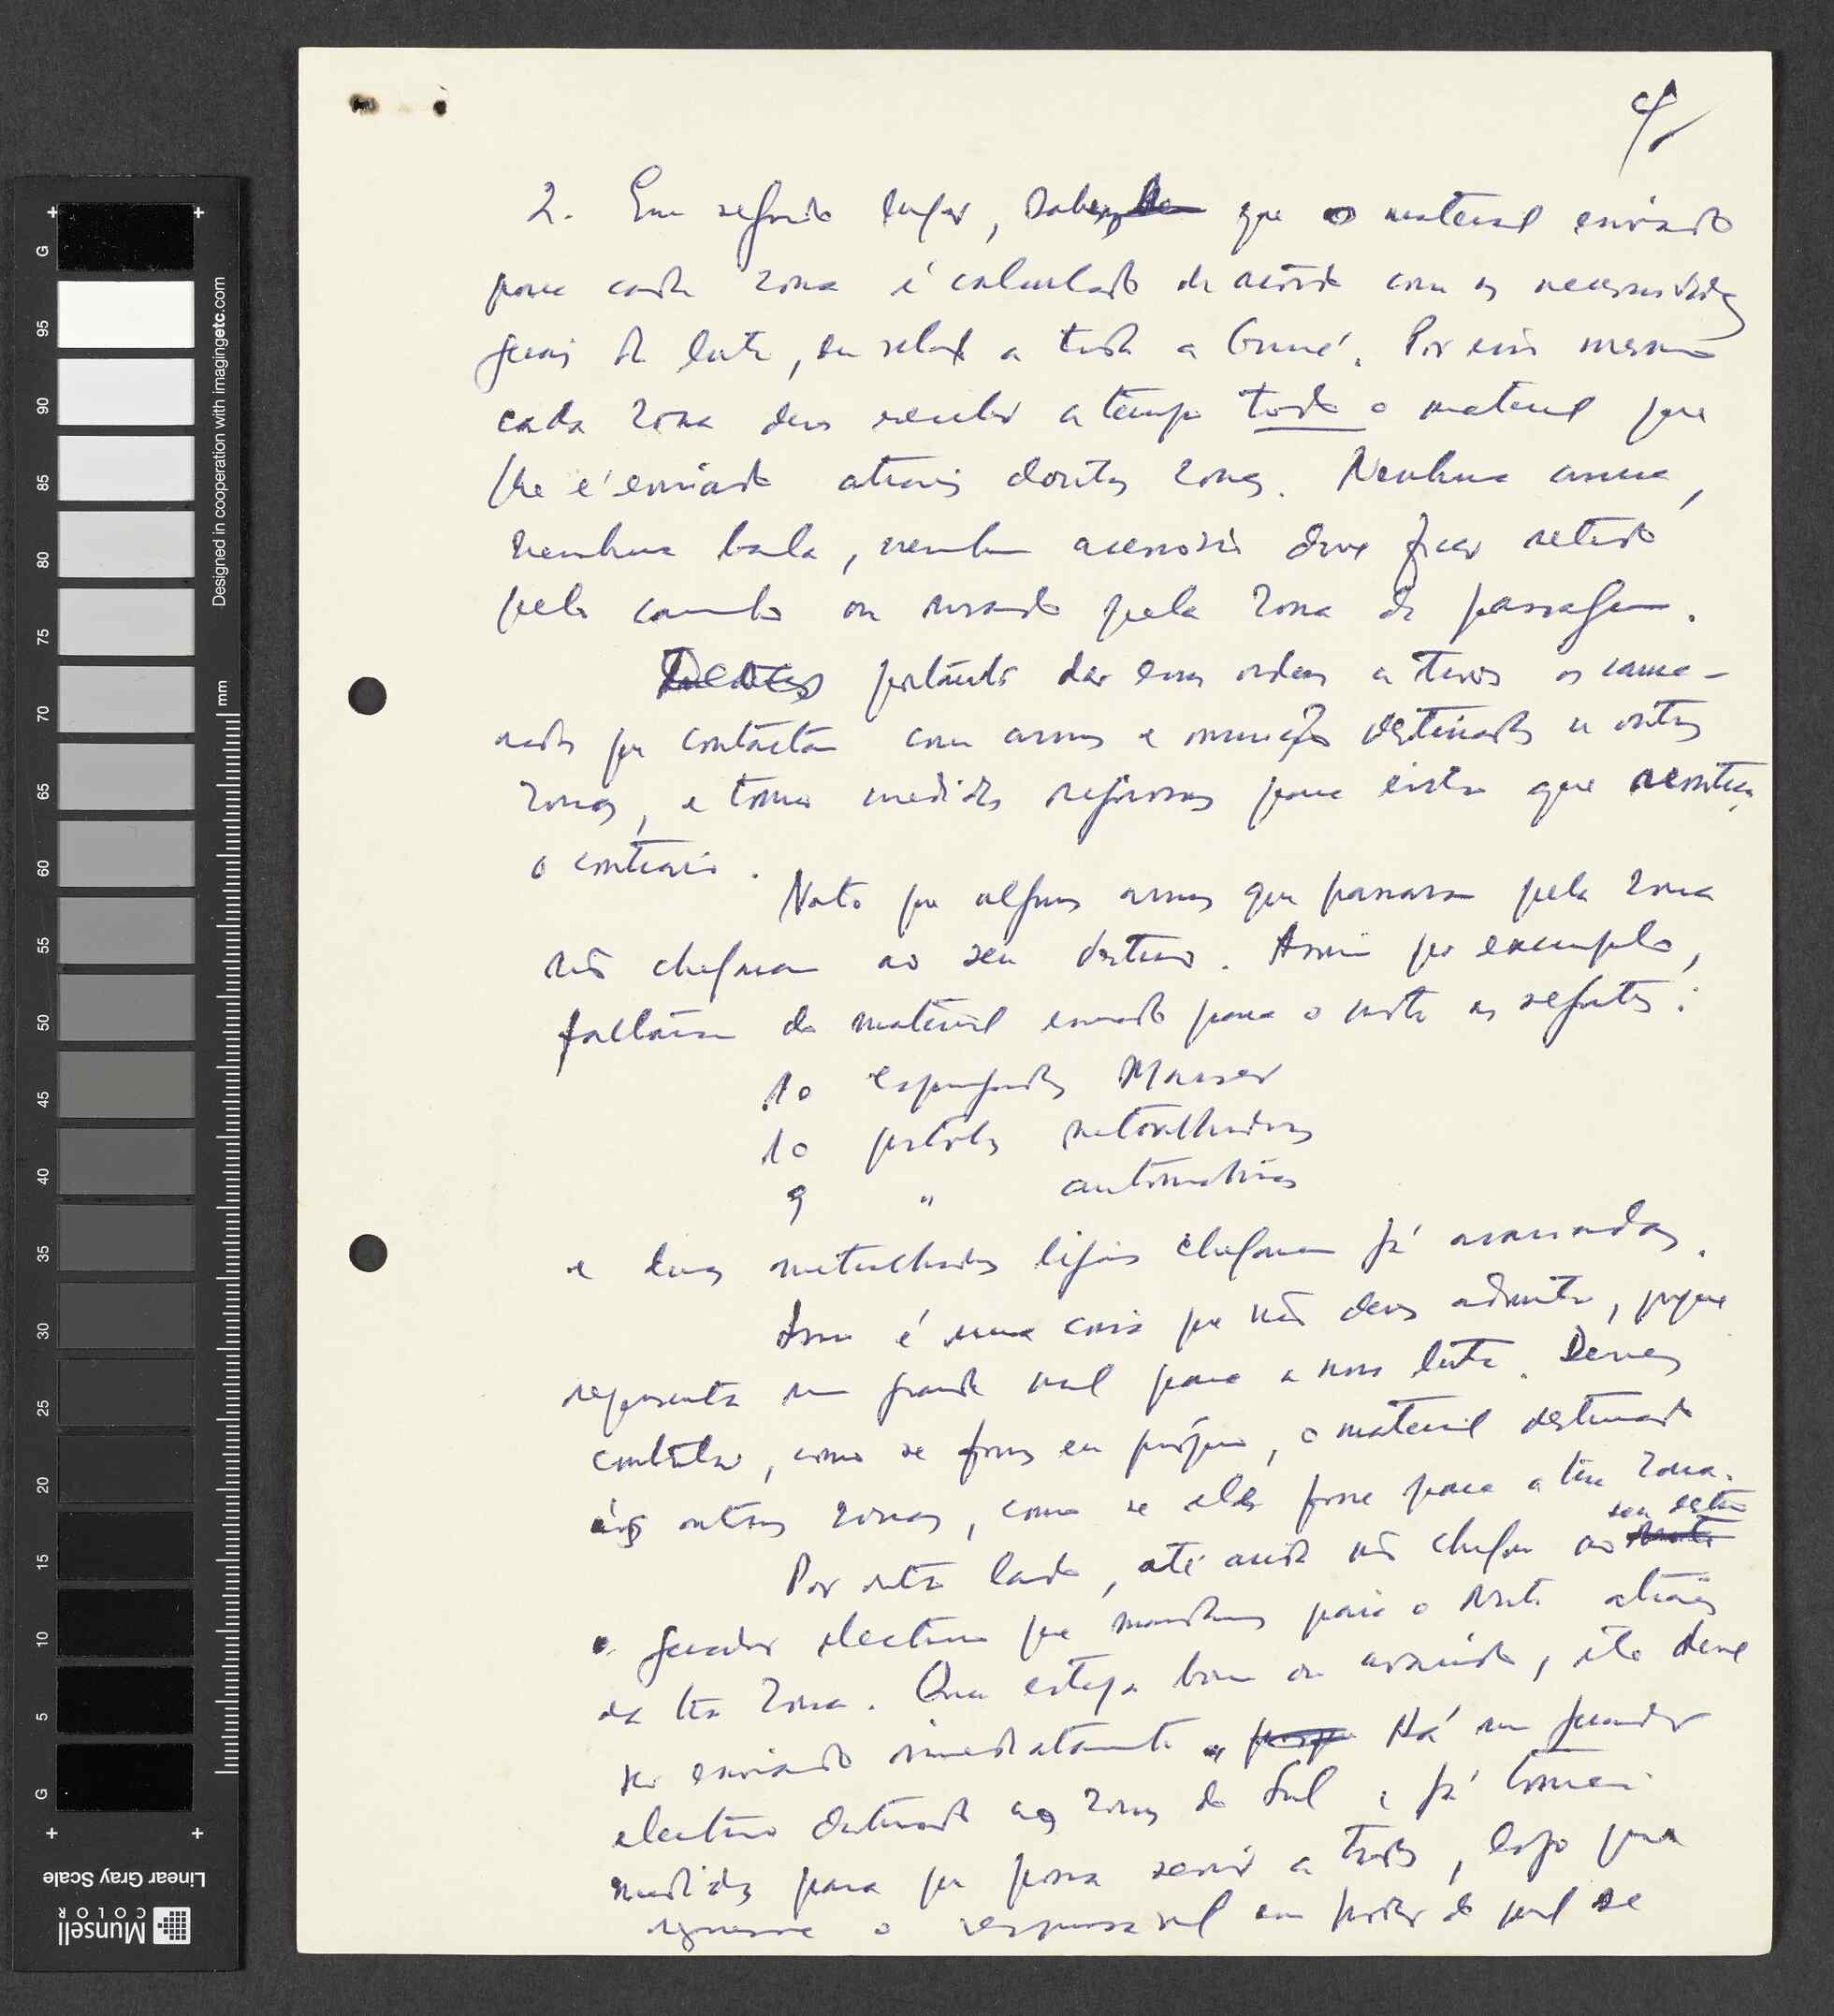 4/
2. Em segundo lugar, sabes que o material enviado
para cada zona é calculado de acôrdo com as necessidades
gerais da luta, em relação a toda a Guiné. Por isso mesmo
cada zona deve receber a tempo todo o material que
lhe é enviado através doutras zonas. Nenhuma arma,
nenhuma bala, nenhum acessório deve ficar retido
pelo caminho ou usado pela zona de passagem.
Deves portanto dar essa ordem a todos os cama-
radas que contactam com armas e munições destinadas a outras
zonas, e tomar medidas rigorosas para evitar que aconteça
o contrário.
Noto que algumas armas que passaram pela zona
não chegaram ao seu destino. Assim por exemplo,
faltaram do material enviado para o norte as seguintes:
10 espingardas Mauser
10 pistolas metralhadoras
9 " automáticas
e duas metralhadoras ligeiras chegaram já avariadas.
Isso é uma coisa que não deves admitir, porque
representa um grande mal para a nossa luta. Deves
controlar, como se fosses eu próprio, o material destinado
às outras zonas, como se ele fosse para a tua zona.
Por outro lado, até ainda não chegou ao seu destino
o gerador eléctrico que mandámos para o Norte através
da tua zona. Quer esteja bom ou avariado, ele deve
ser enviado imediatamente. Há um gerador
eléctrico destinado às zonas do Sul e já tomei
medidas para que possa servir a todos, logo que
regresse o responsável em poder do qual se
Designed in cooperation with imagingetc.com
mm
G 95 90 85 80 75 70 65 60 55 50 45 40 35 30 25 20 15 10 5 G
Linear Gray Scale
Munsell
COLOR